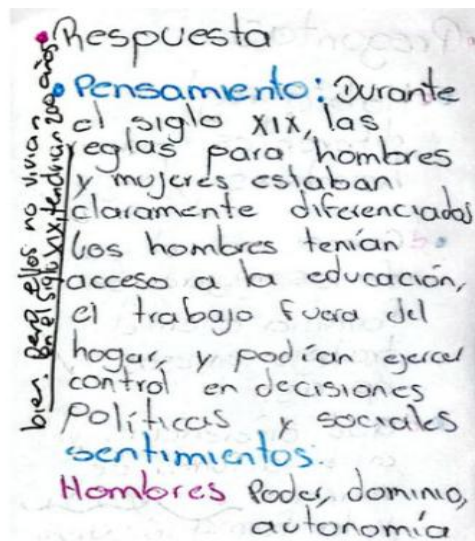 Respuesta
Pensamiento: Durante
el siglo XIX, las
reglas para hombres
y mujeres estaban
claramente diferenciadas
Los hombres tenían
acceso a la educación,
el trabajo fuera del
hogar, y podían ejercer
control en decisiones
Políticas y sociales
sentimientos.
Hombres Poder, dominio,
autonomía
bien. Pero ellos no vivian
en el siglo XIX, tendrian 200 años